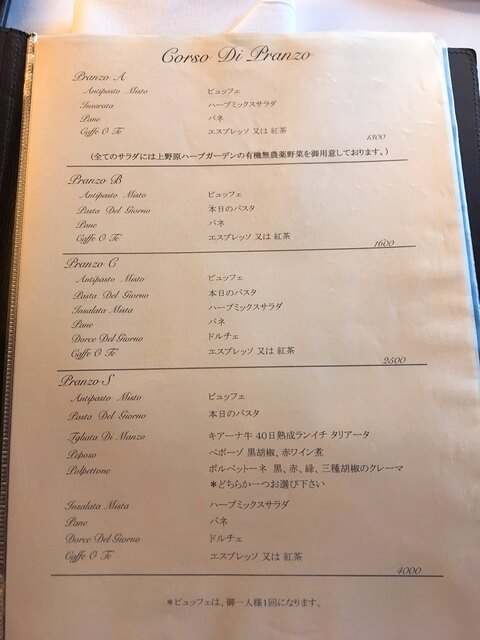 Corso Di Pranzo
Pranzo A
Antipasto Misto ビュッフェ
Insarata ハーブミックスサラダ
Pane パネ
Caffe O Te' エスプレッソ 又は 紅茶
1300
(全てのサラダには上野原ハーブガーデンの有機無農薬野菜を御用意しております。)
Pranzo B
Antipasto Misto ビュッフェ
Pasta Del Giorno 本日のパスタ
Pane パネ
Caffe O Te' エスプレッソ 又は 紅茶
1600
Pranzo C
Antipasto Misto ビュッフェ
Pasta Del Giorno 本日のパスタ
Insalata Mista ハーブミックスサラダ
Pane パネ
Dorce Del Giorno ドルチェ
Caffe O Te' エスプレッソ 又は 紅茶
2500
Pranzo S
Antipasto Misto ビュッフェ
Pasta Del Giorno 本日のパスタ
Tgliata Di Manzo キアーナ牛 40日熟成ランイチ タリアータ
Peposo ペポーゾ 黒胡椒、赤ワイン煮
Polpettone ポルペットーネ 黒、赤、緑、三種胡椒のクレーマ
*どちらか一つお選び下さい
Insalata Mista ハーブミックスサラダ
Pane パネ
Dorce Del Giorno ドルチェ
Caffe O Te' エスプレッソ 又は 紅茶
4000
*ビュッフェは、御一人様1回になります。